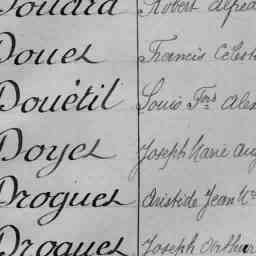 Douard Robert Alfred
Doues Francis Célest
Douétil Louis Fois Alex
Doyes Joseph Marie Aug
Drogues Aristide Jean
Drogues Joseph Arthur